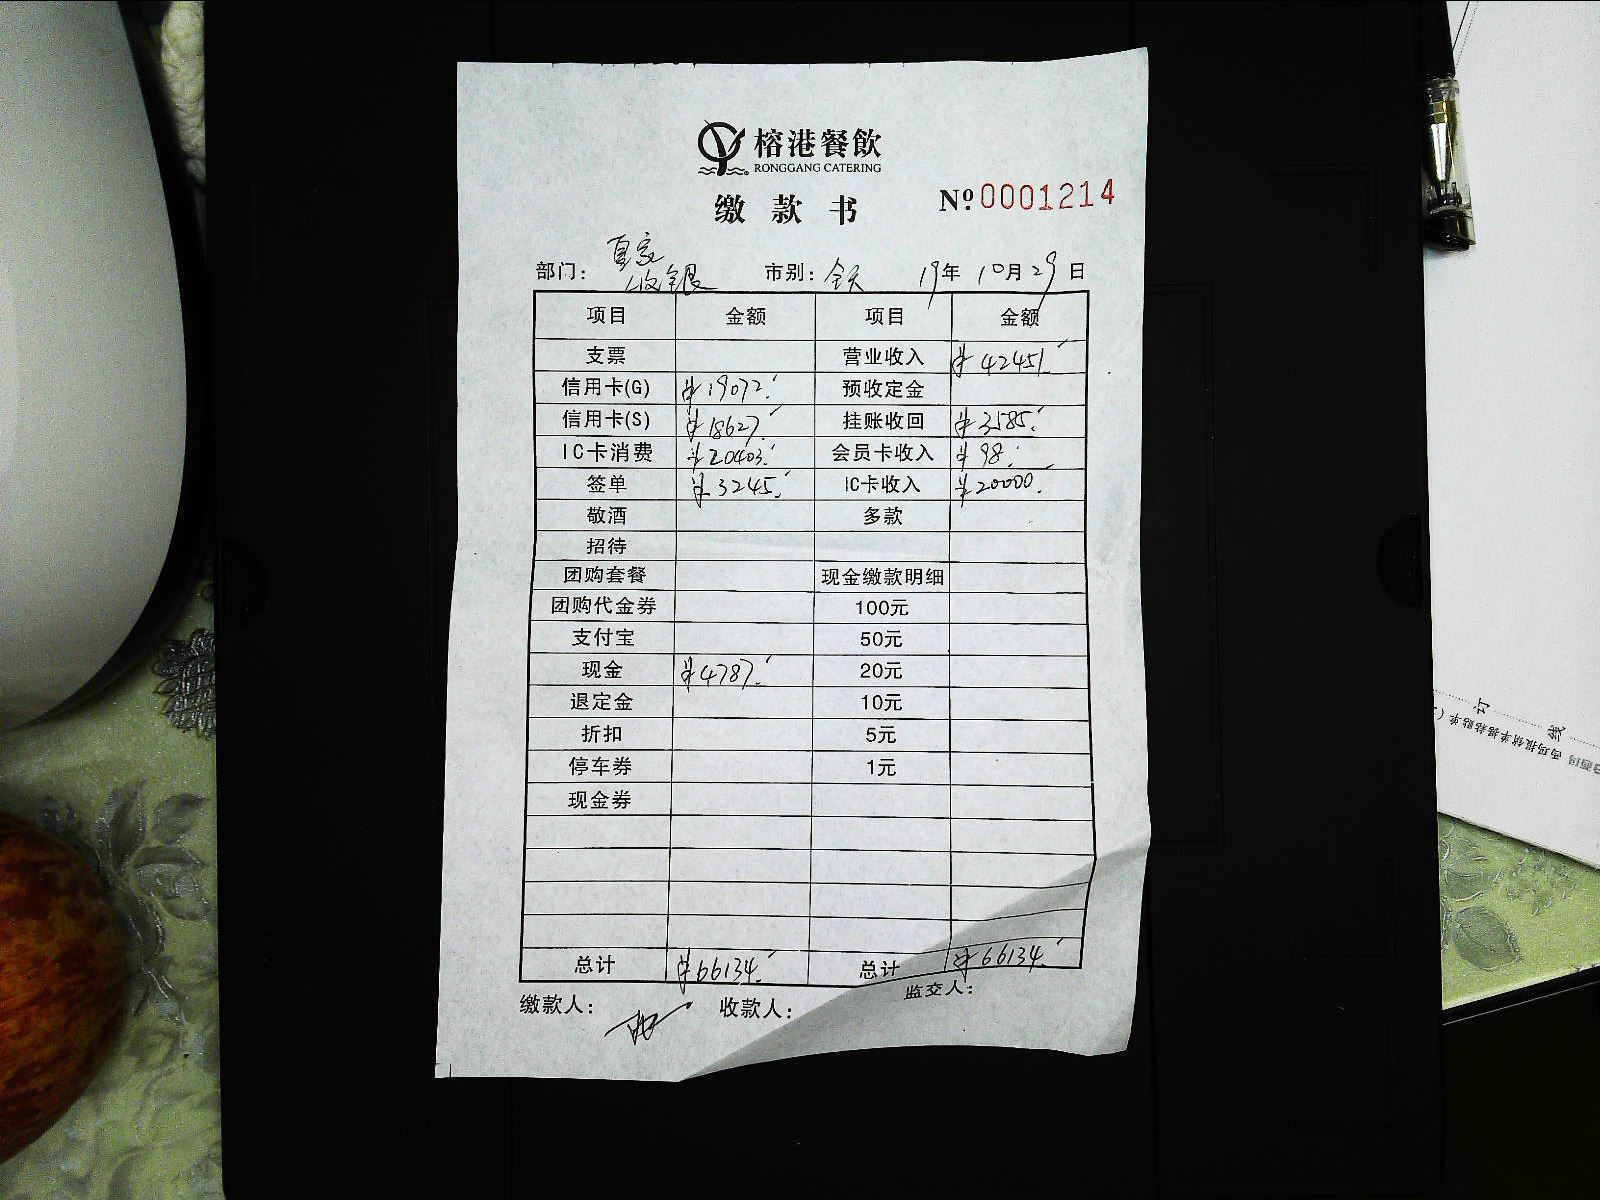 榕港餐飲
RONGGANG CATERING
缴款书
Nº 0001214
部门: 夏家收银 市别: 全天 19年 10月29日
项目 金额 项目 金额
支票 营业收入 ¥42451.
信用卡(G) ¥19072. 预收定金
信用卡(S) ¥18627. 挂账收回 ¥3585.
IC卡消费 ¥20403. 会员卡收入 ¥98.
签单 ¥3245. IC卡收入 ¥20000.
敬酒 多款
招待
团购套餐 现金缴款明细
团购代金券 100元
支付宝 50元
现金 ¥4787. 20元
退定金 10元
折扣 5元
停车券 1元
现金券
总计 ¥66134. 总计 ¥66134.
缴款人: 收款人: 监交人:
订
线